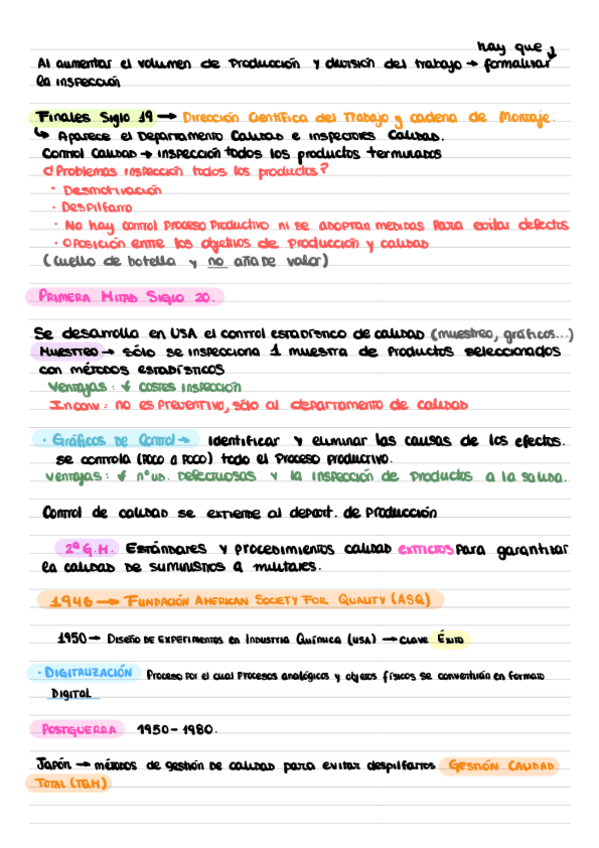 hay que
Al aumentar el volumen de Producción y división del trabajo → formalizar
la inspección
Finales Siglo 19 → Dirección Científica del Trabajo y cadena de Montaje.
↳ Aparece el Departamento Calidad e inspectores Calidad.
Control Calidad → inspección todos los productos terminados
¿Problemas inspección todos los productos?
· Desmotivación
· Despilfarro
· No hay control Proceso Productivo ni se adoptan medidas Para evitar defectos
· Oposición entre los objetivos de Producción y calidad
(Cuello de botella y no añade valor)
Primera Mitad Siglo 20.
Se desarrolla en USA el control estadístico de calidad (muestreo, gráficos...)
Muestreo → sólo se inspecciona 1 muestra de Productos seleccionados
con métodos estadísticos
Ventajas: ↓ costes inspección
Inconv: no es Preventivo, sólo al departamento de calidad
· Gráficos de Control → Identificar y eliminar las causas de los efectos.
se controla (Poco a Poco) todo el Proceso Productivo.
Ventajas: ↓ nº ud. Defectuosas y la inspección de Productos a la salida.
Control de calidad se extiende al depart. de Producción
2ª G.M. Estándares y procedimientos calidad estrictos Para garantizar
la calidad de suministros a militares.
1946 → Fundación American Society For Quality (ASQ)
1950 → Diseño de Experimentos en Industria Química (USA) → clave Éxito
· Digitalización Proceso Por el cual Procesos analógicos y objetos físicos se convertirán en Formato
Digital
Postguerra 1950-1980.
Japón → métodos de gestión de calidad para evitar despilfarros Gestión Calidad
Total (TQM)